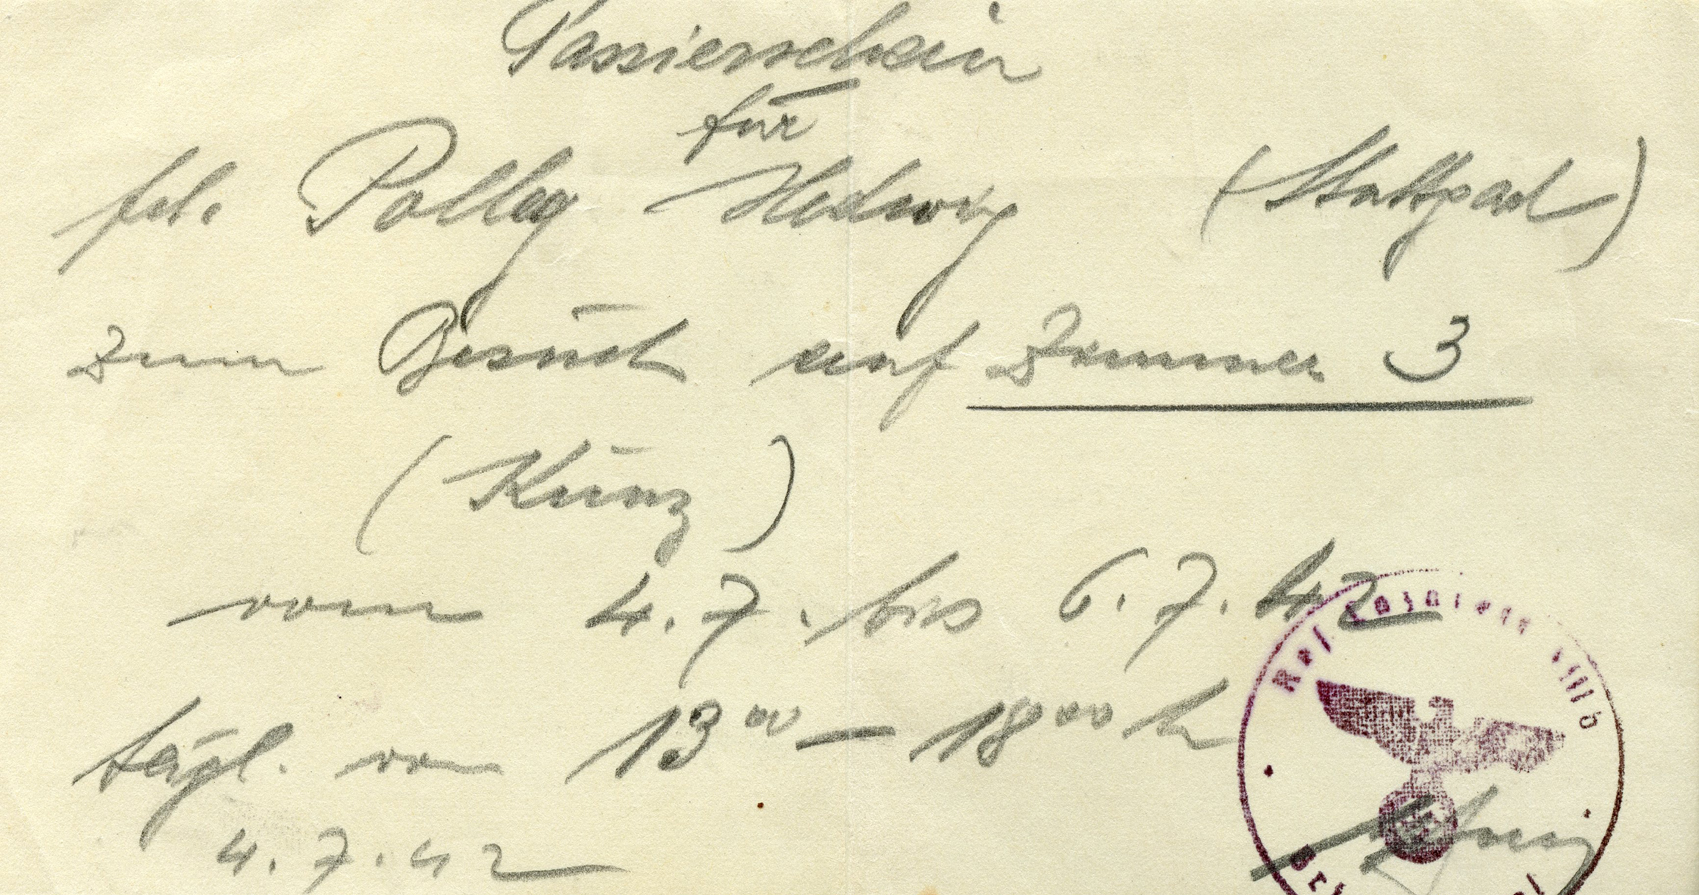 Passierschein
für
frl. Polleg Hedwig (Stuttgard)
zum Besuch auf Zimmer 3
(Kunz)
vom 4.7. bis 6.7.42
tägl. von 13⁰⁰ — 18⁰⁰ h
4.7.42